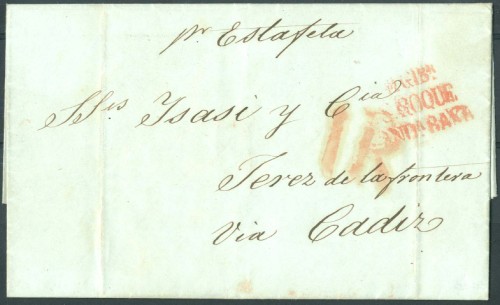 pr Estafeta
Sres Isasi y Cia
Jerez de la frontera
Via Cadiz
ROQUE